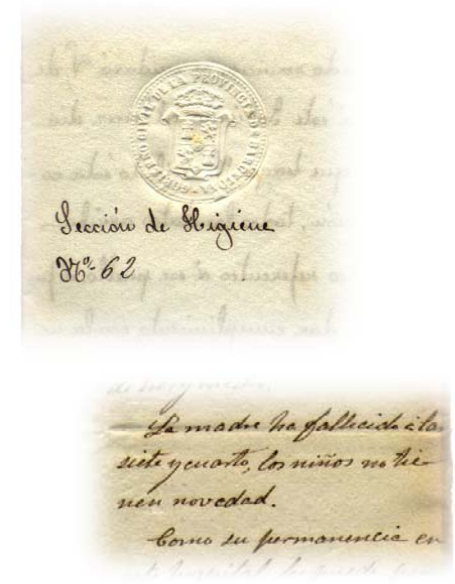 GOBIERNO CIVIL DE LA PROVINCIA DE
Sección de Higiene
Nº 62
La madre ha fallecido á las
siete y cuarto, los niños no tie-
nen novedad.
Como su permanencia en